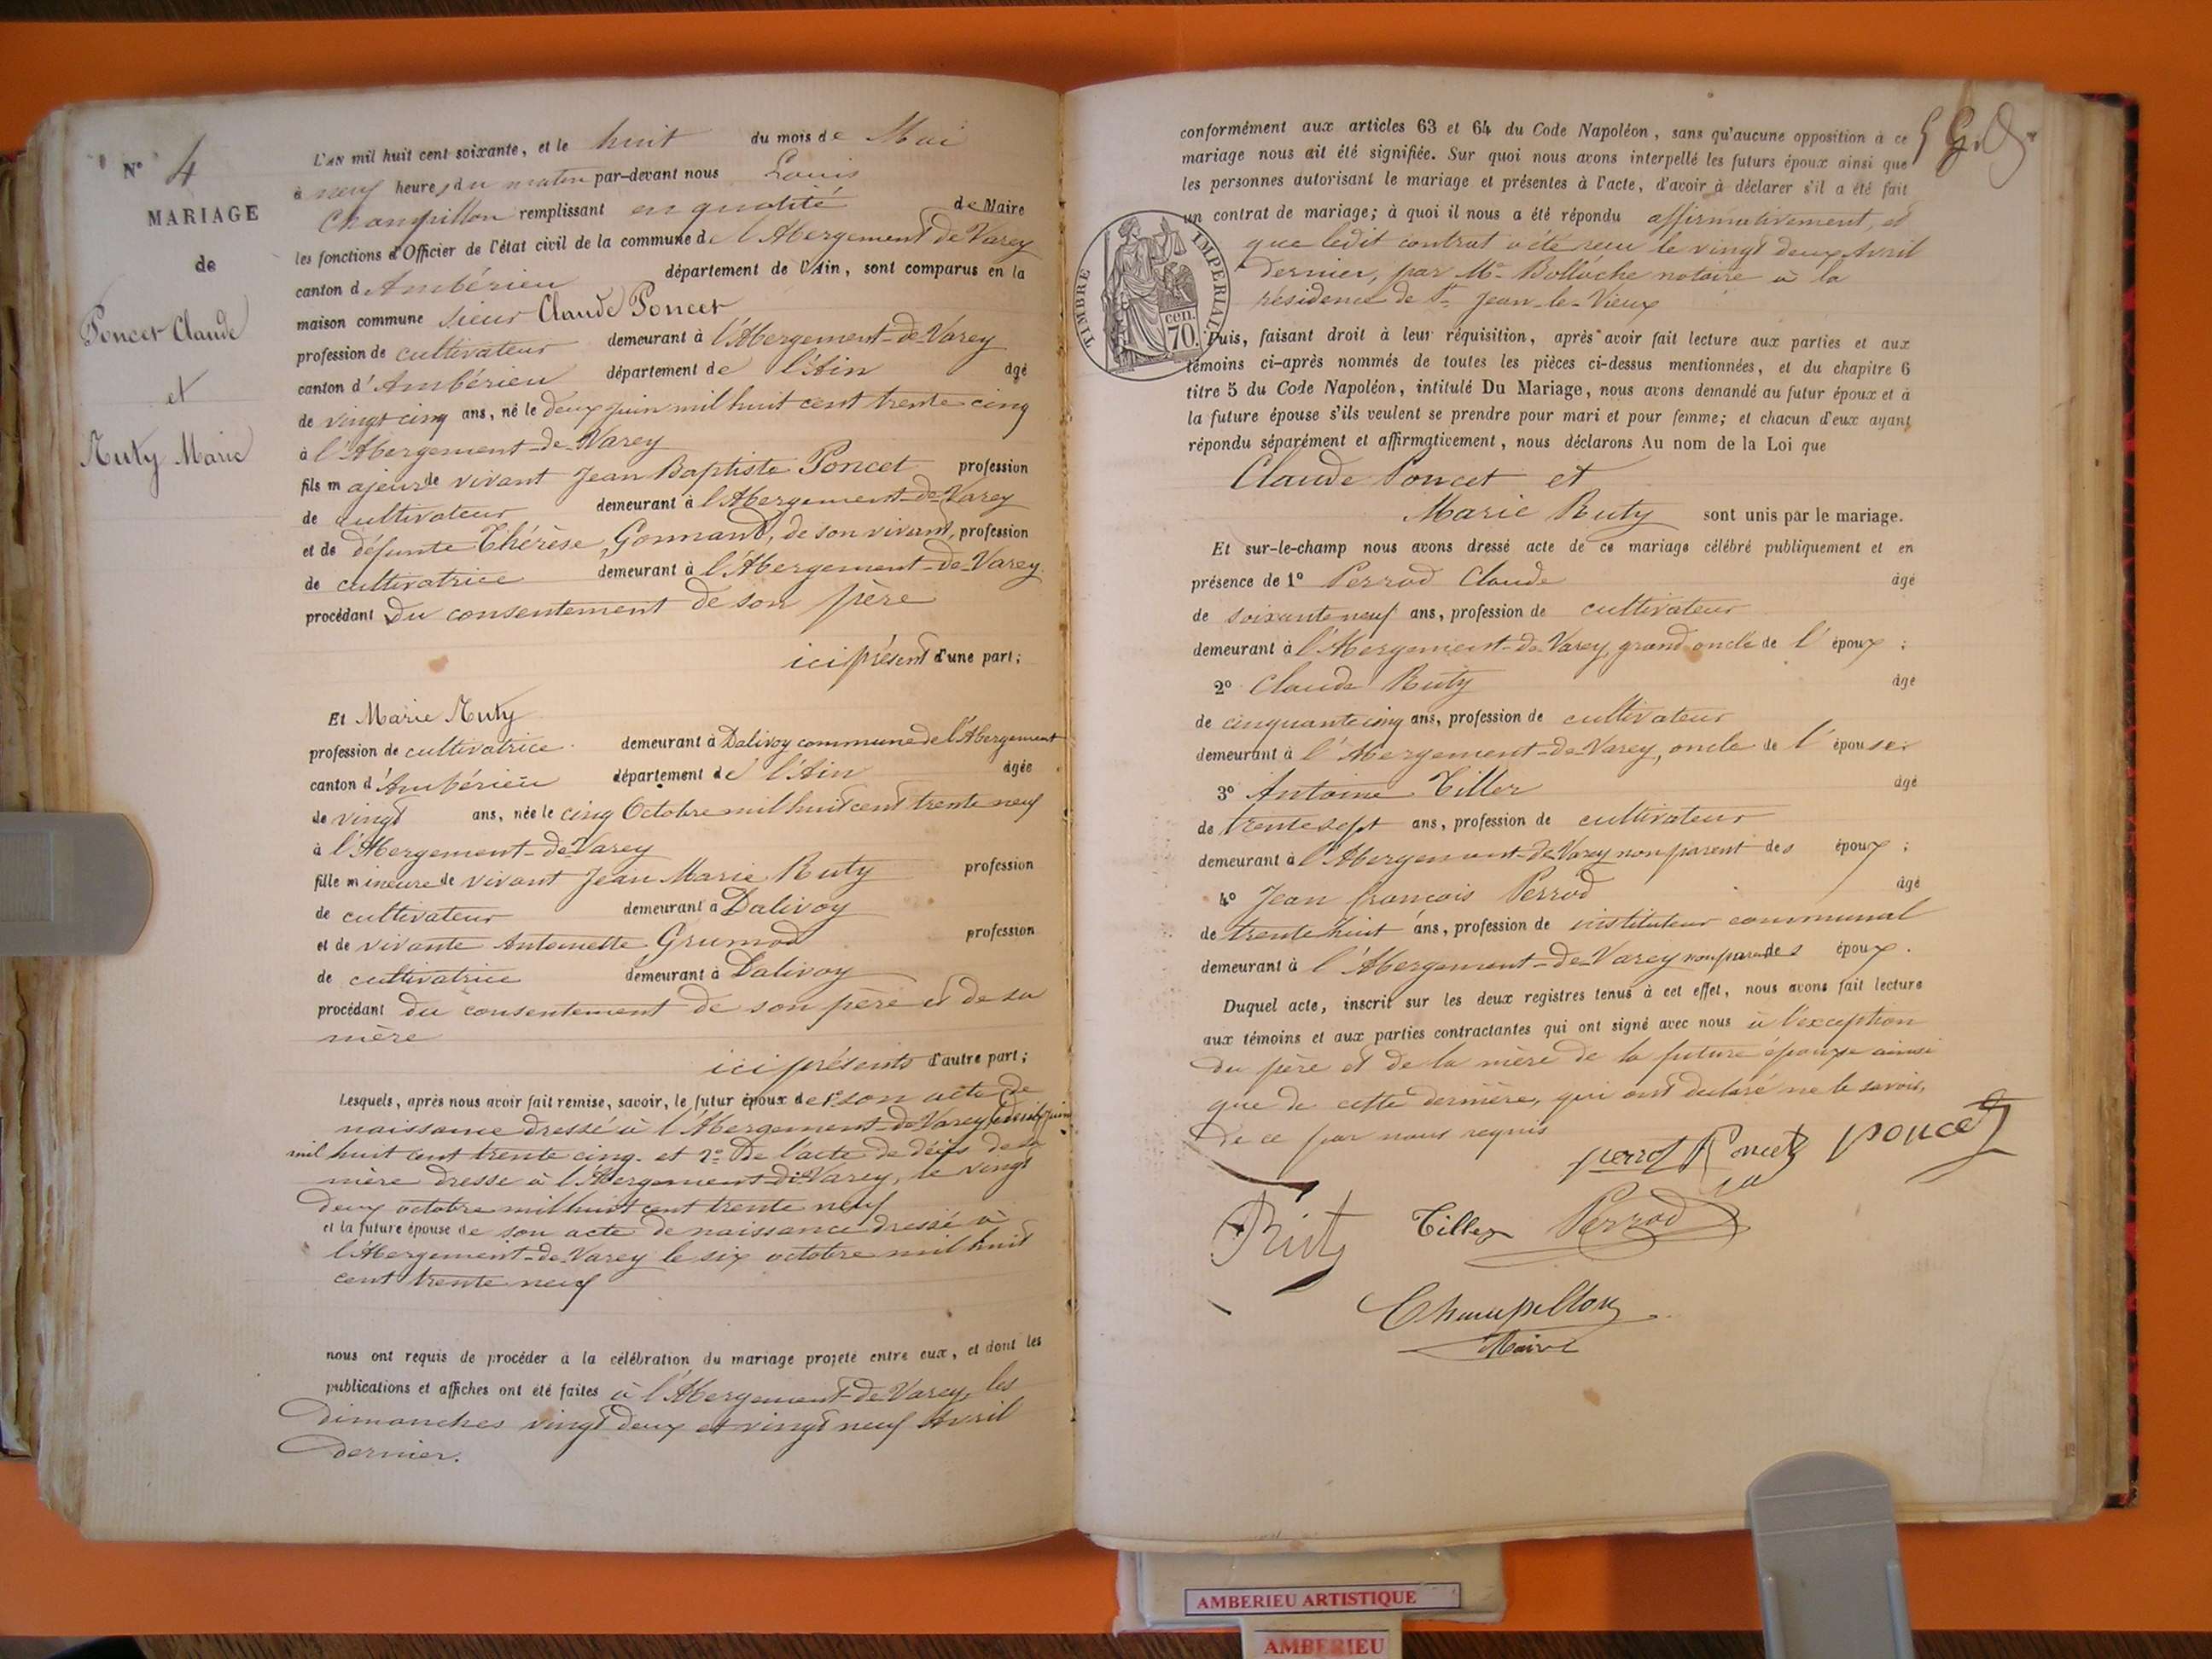 N° 4
MARIAGE
de
Poncet Claude
et
Ruty Marie
L'AN mil huit cent soixante, et le huit du mois de Mai
à neuf heures du matin par-devant nous Louis
Champillon remplissant en qualité de Maire
les fonctions d'Officier de l'état civil de la commune de l'Abergement de Varey
canton d Ambérieu département de l'Ain, sont comparus en la
maison commune sieur Claude Poncet
profession de cultivateur demeurant à l'Abergement-de-Varey
canton d'Ambérieu département de l'Ain âgé
de vingt cinq ans, né le deux juin mil huit cent trente cinq
à l'Abergement-de-Varey
fils majeur de vivant Jean Baptiste Poncet profession
de cultivateur demeurant à l'Abergement-de-Varey
et de défunte Thérèse Gonnand, de son vivant, profession
de cultivatrice demeurant à l'Abergement-de-Varey
procédant du consentement de son père
ici présent d'une part;
Et Marie Ruty
profession de cultivatrice demeurant à Dalivoy commune de l'Abergement
canton d'Ambérieu département de l'Ain âgée
de vingt ans, née le cinq Octobre mil huit cent trente neuf
à l'Abergement-de-Varey
fille mineure de vivant Jean Marie Ruty profession
de cultivateur demeurant à Dalivoy
et de vivante Antoinette Grumod profession
de cultivatrice demeurant à Dalivoy
procédant du consentement de son père et de sa
mère
ici présents d'autre part;
Lesquels, après nous avoir fait remise, savoir, le futur époux de 1° son acte de
naissance dressé à l'Abergement-de-Varey le deux juin
mil huit cent trente cinq. et 2° de l'acte de décès de sa
mère dressé à l'Abergement-de-Varey, le vingt
deux octobre mil huit cent trente neuf
et la future épouse de son acte de naissance dressé à
l'Abergement-de-Varey le six octobre mil huit
cent trente neuf
nous ont requis de procéder à la célébration du mariage projeté entre eux, et dont les
publications et affiches ont été faites à l'Abergement-de-Varey, les
dimanches vingt deux et vingt neuf Avril
dernier.
conformément aux articles 63 et 64 du Code Napoléon, sans qu'aucune opposition à ce
mariage nous ait été signifiée. Sur quoi nous avons interpellé les futurs époux ainsi que
les personnes autorisant le mariage et présentes à l'acte, d'avoir à déclarer s'il a été fait
un contrat de mariage; à quoi il nous a été répondu affirmativement, et
que ledit contrat a été reçu le vingt deux Avril
dernier, par Me Bolloche notaire à la
résidence de St Jean-le-Vieux
TIMBRE IMPERIAL
70. cen.
Puis, faisant droit à leur réquisition, après avoir fait lecture aux parties et aux
témoins ci-après nommés de toutes les pièces ci-dessus mentionnées, et du chapitre 6
titre 5 du Code Napoléon, intitulé Du Mariage, nous avons demandé au futur époux et à
la future épouse s'ils veulent se prendre pour mari et pour femme; et chacun d'eux ayant
répondu séparément et affirmativement, nous déclarons Au nom de la Loi que
Claude Poncet et
Marie Ruty sont unis par le mariage.
Et sur-le-champ nous avons dressé acte de ce mariage célébré publiquement et en
présence de 1° Perrod Claude âgé
de soixante neuf ans, profession de cultivateur
demeurant à l'Abergement-de-Varey, grand oncle de l'époux;
2° Claude Ruty âgé
de cinquante cinq ans, profession de cultivateur
demeurant à l'Abergement-de-Varey, oncle de l'épouse;
3° Antoine Tiller âgé
de trente sept ans, profession de cultivateur
demeurant à l'Abergement-de-Varey non parent des époux;
4° Jean François Perrod âgé
de trente huit ans, profession de instituteur communal
demeurant à l'Abergement-de-Varey non parent des époux.
Duquel acte, inscrit sur les deux registres tenus à cet effet, nous avons fait lecture
aux témoins et aux parties contractantes qui ont signé avec nous à l'exception
du père et de la mère de la future épouse ainsi
que de cette dernière, qui ont déclaré ne le savoir,
de ce par nous requis
perrod Poncet poncet
Ruty Tiller Perrod
Champillon
Maire
AMBERIEU ARTISTIQUE
AMBERIEU